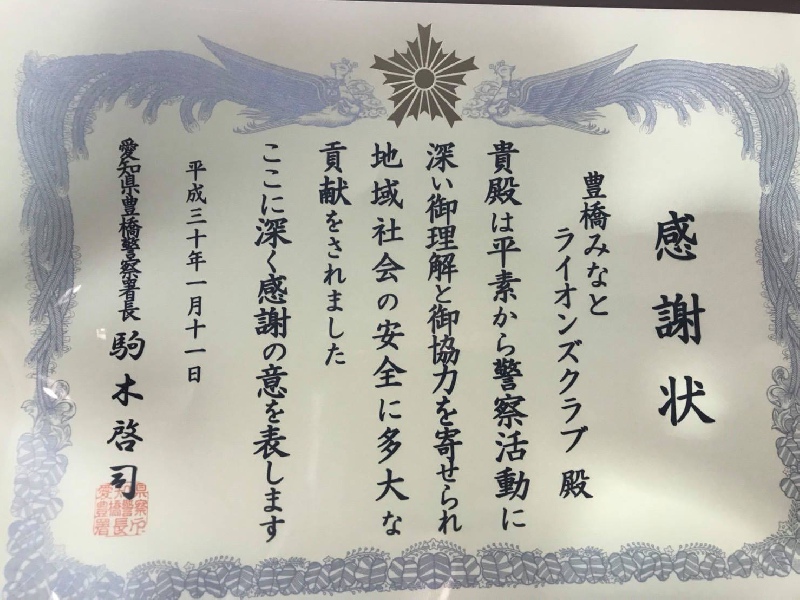 感謝状
豊橋みなと
ライオンズクラブ 殿
貴殿は平素から警察活動に
深い御理解と御協力を寄せられ
地域社会の安全に多大な
貢献をされました
ここに深く感謝の意を表します
平成三十年一月十一日
愛知県豊橋警察署長 駒木啓司